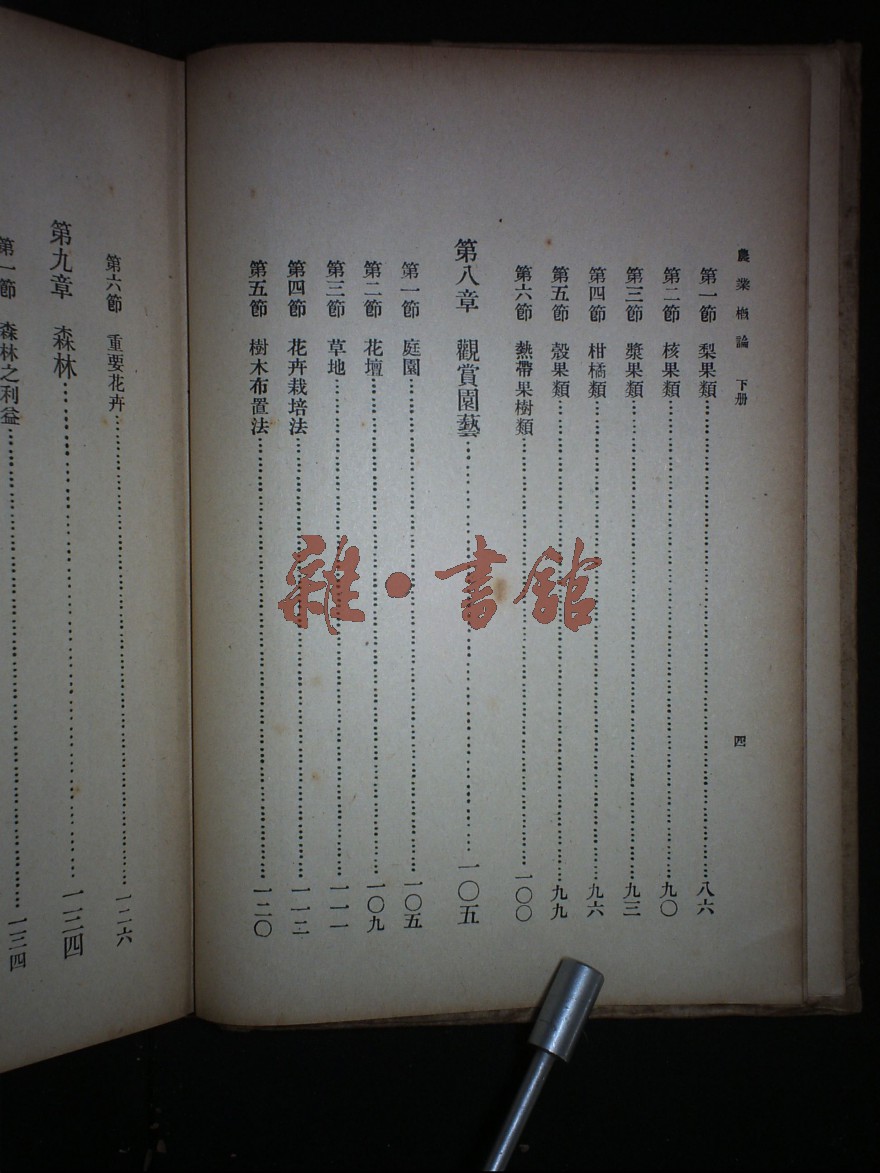 農業概論 下册
四
第一節 梨果類……八六
第二節 核果類……九〇
第三節 漿果類……九三
第四節 柑橘類……九六
第五節 殼果類……九九
第六節 熱帶果樹類……一〇〇
第八章 觀賞園藝……一〇五
第一節 庭園……一〇五
第二節 花壇……一〇九
第三節 草地……一一一
第四節 花卉栽培法……一一二
第五節 樹木布置法……一二〇
第六節 重要花卉……一二六
第九章 森林……一三四
第一節 森林之利益……一三四
雜·書館